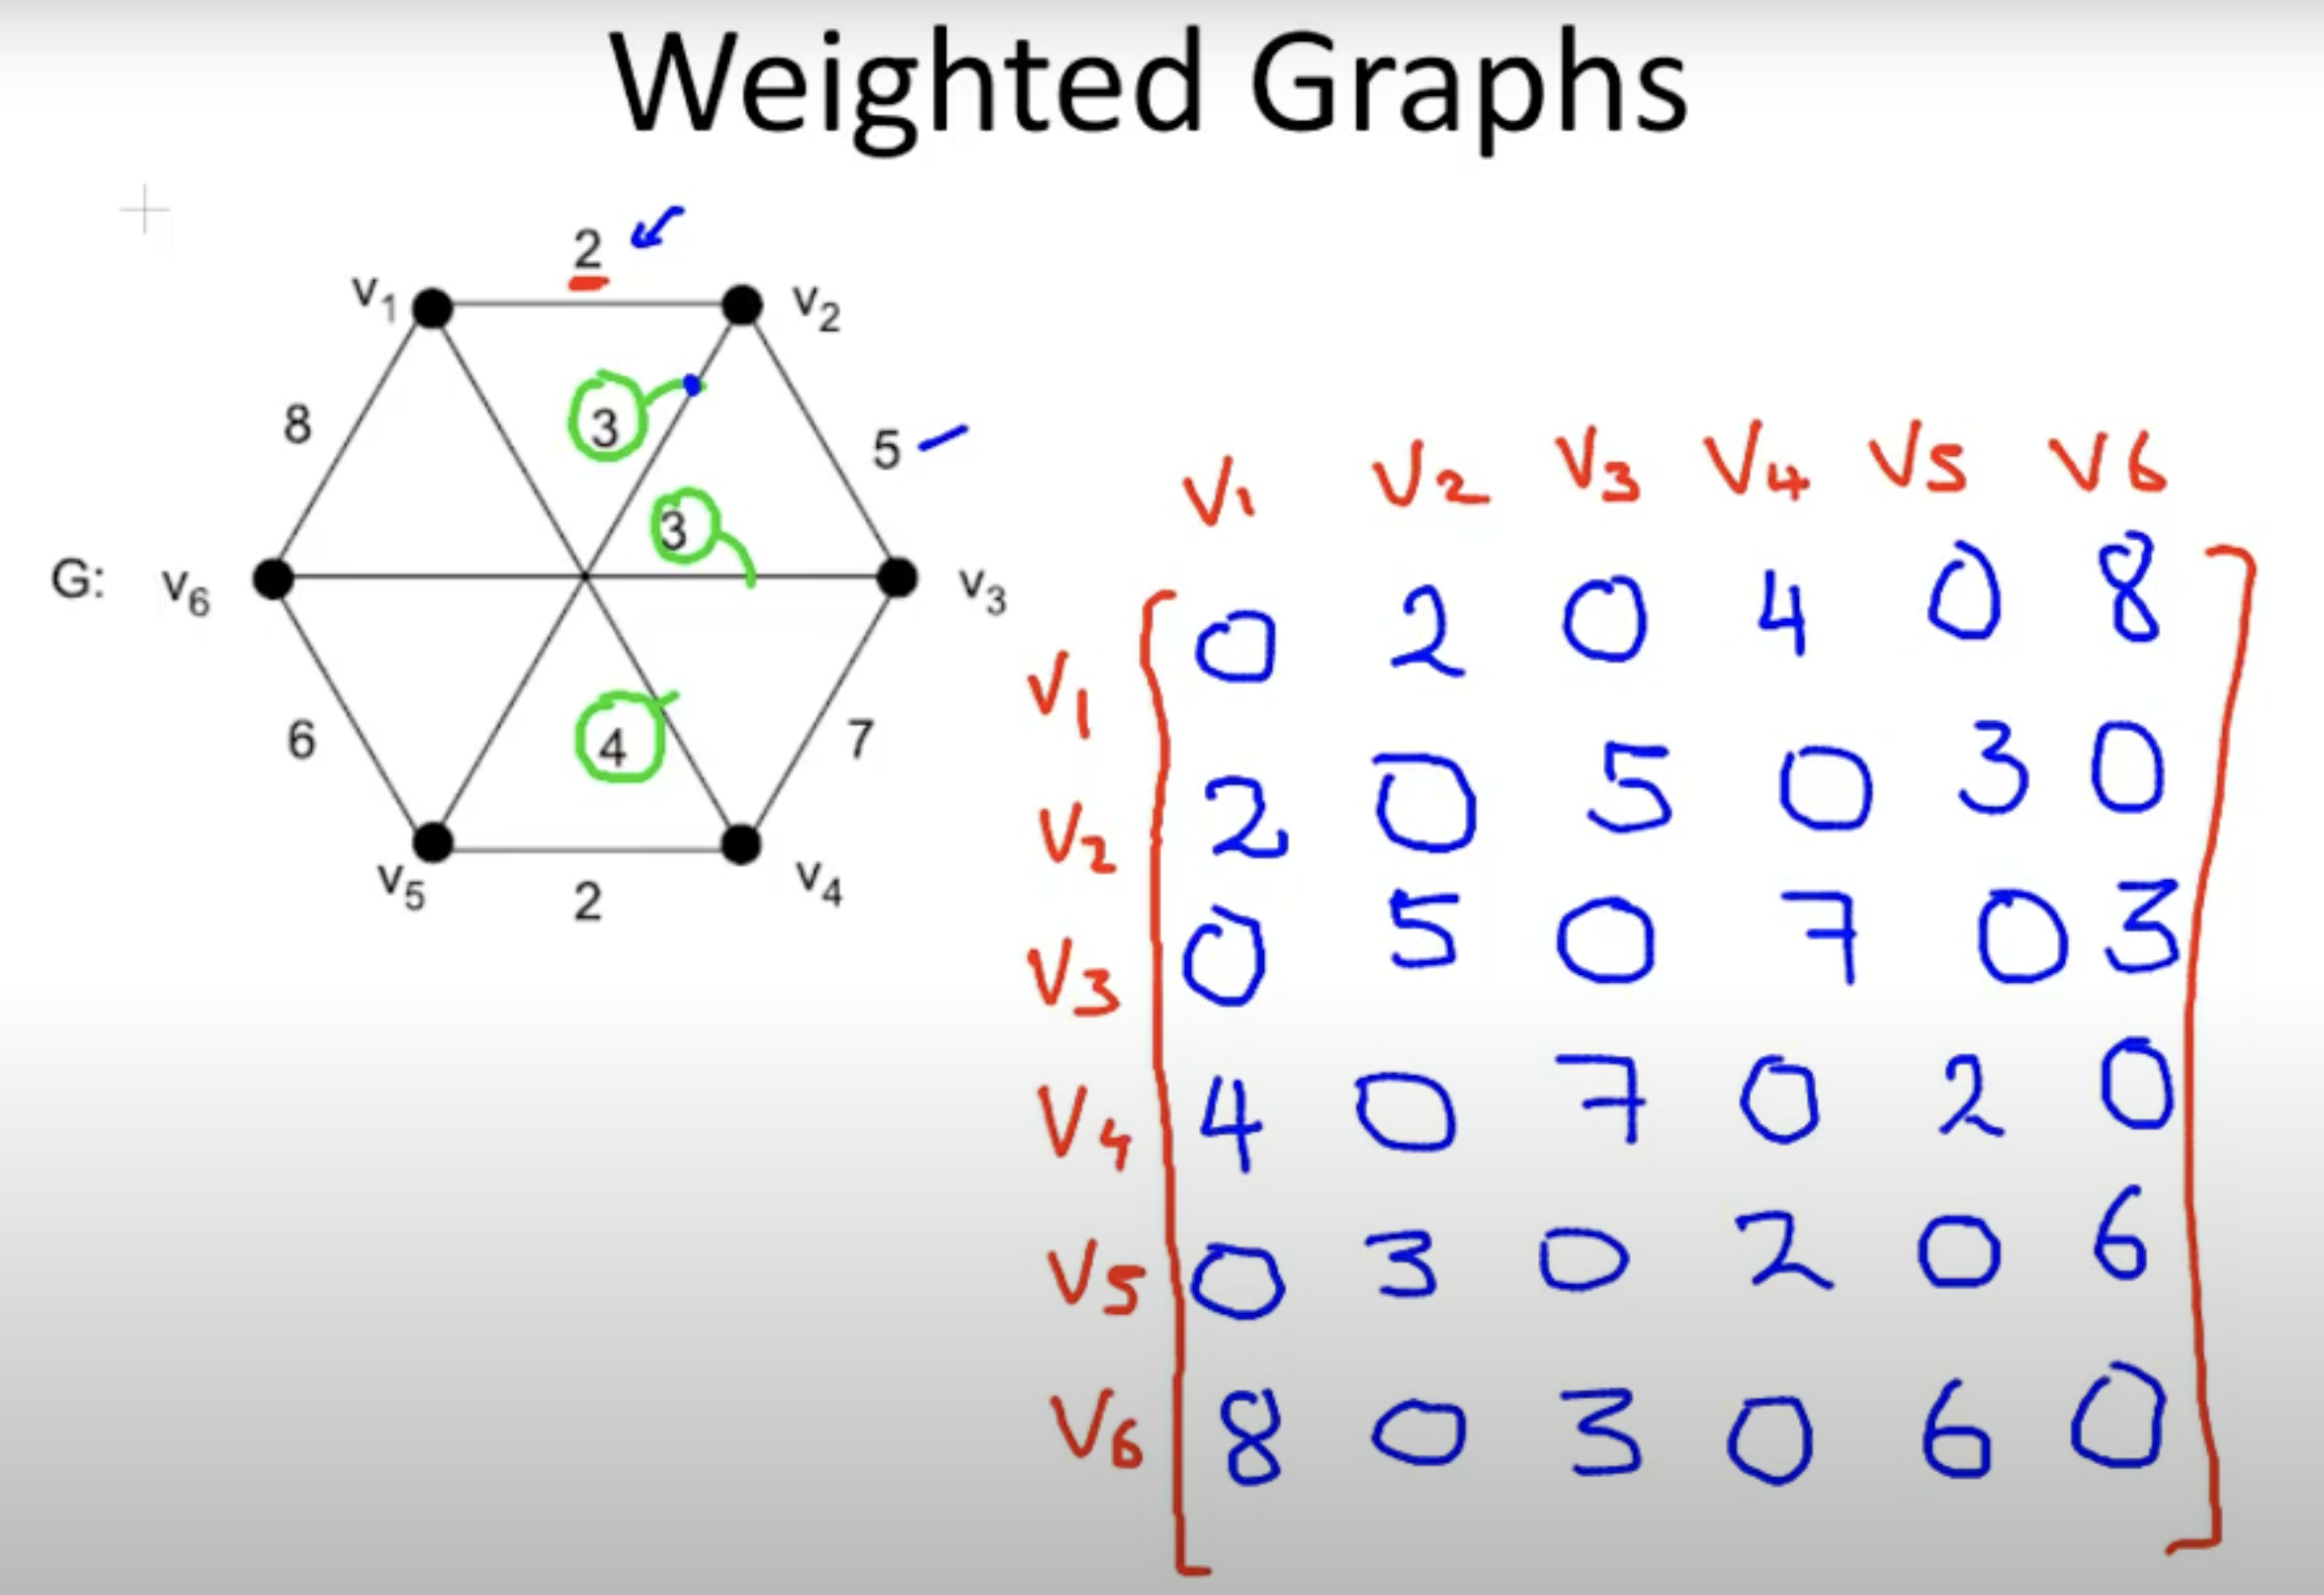 Weighted Graphs
2
v1 v2
8 3 5
3
G: v6 v3
6 4 7
v5 v4
2
V1 V2 V3 V4 V5 V6
V1 0 2 0 4 0 8
V2 2 0 5 0 3 0
V3 0 5 0 7 0 3
V4 4 0 7 0 2 0
V5 0 3 0 2 0 6
V6 8 0 3 0 6 0